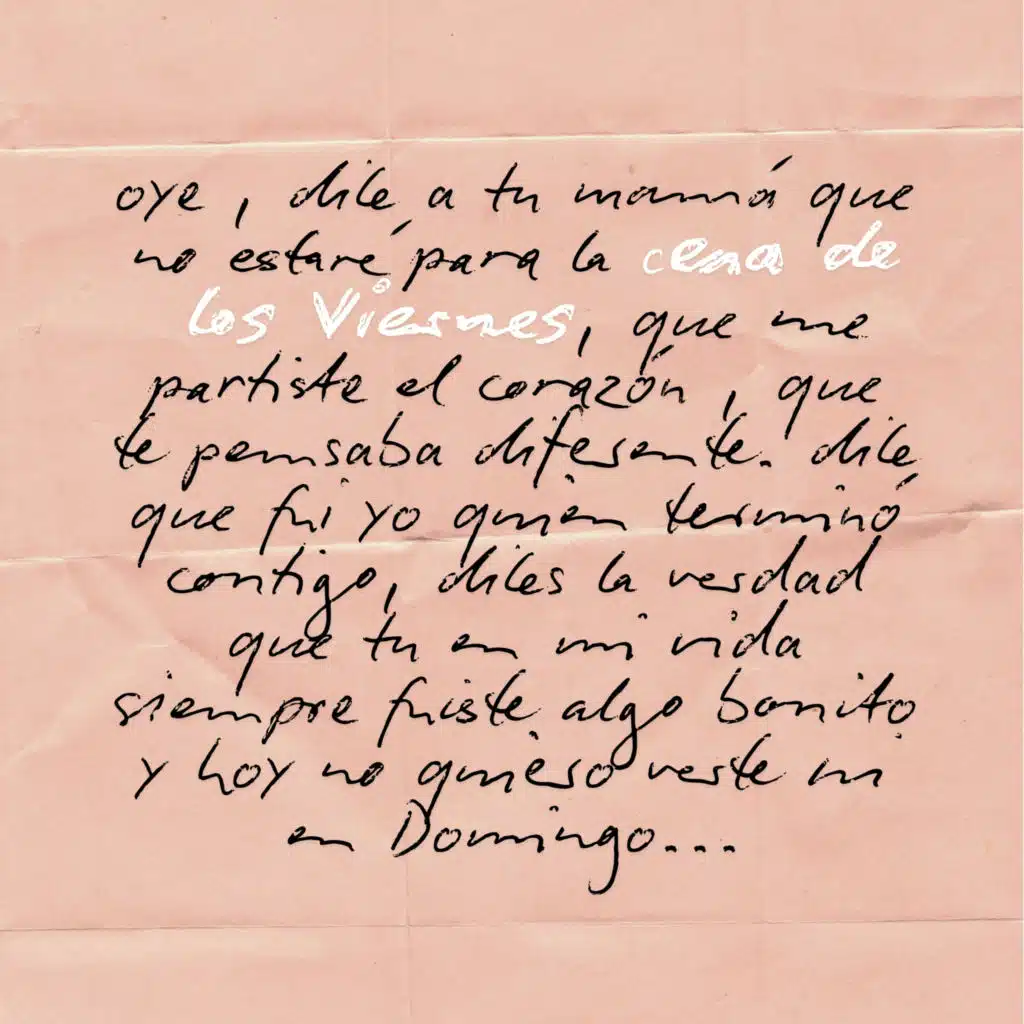 oye, dile a tu mamá que
no estaré para la cena de
los Viernes, que me
partiste el corazón, que
te pensaba diferente. dile
que fui yo quien terminó
contigo, diles la verdad
que tu en mi vida
siempre fuiste algo bonito
y hoy no quiero verte ni
en Domingo...